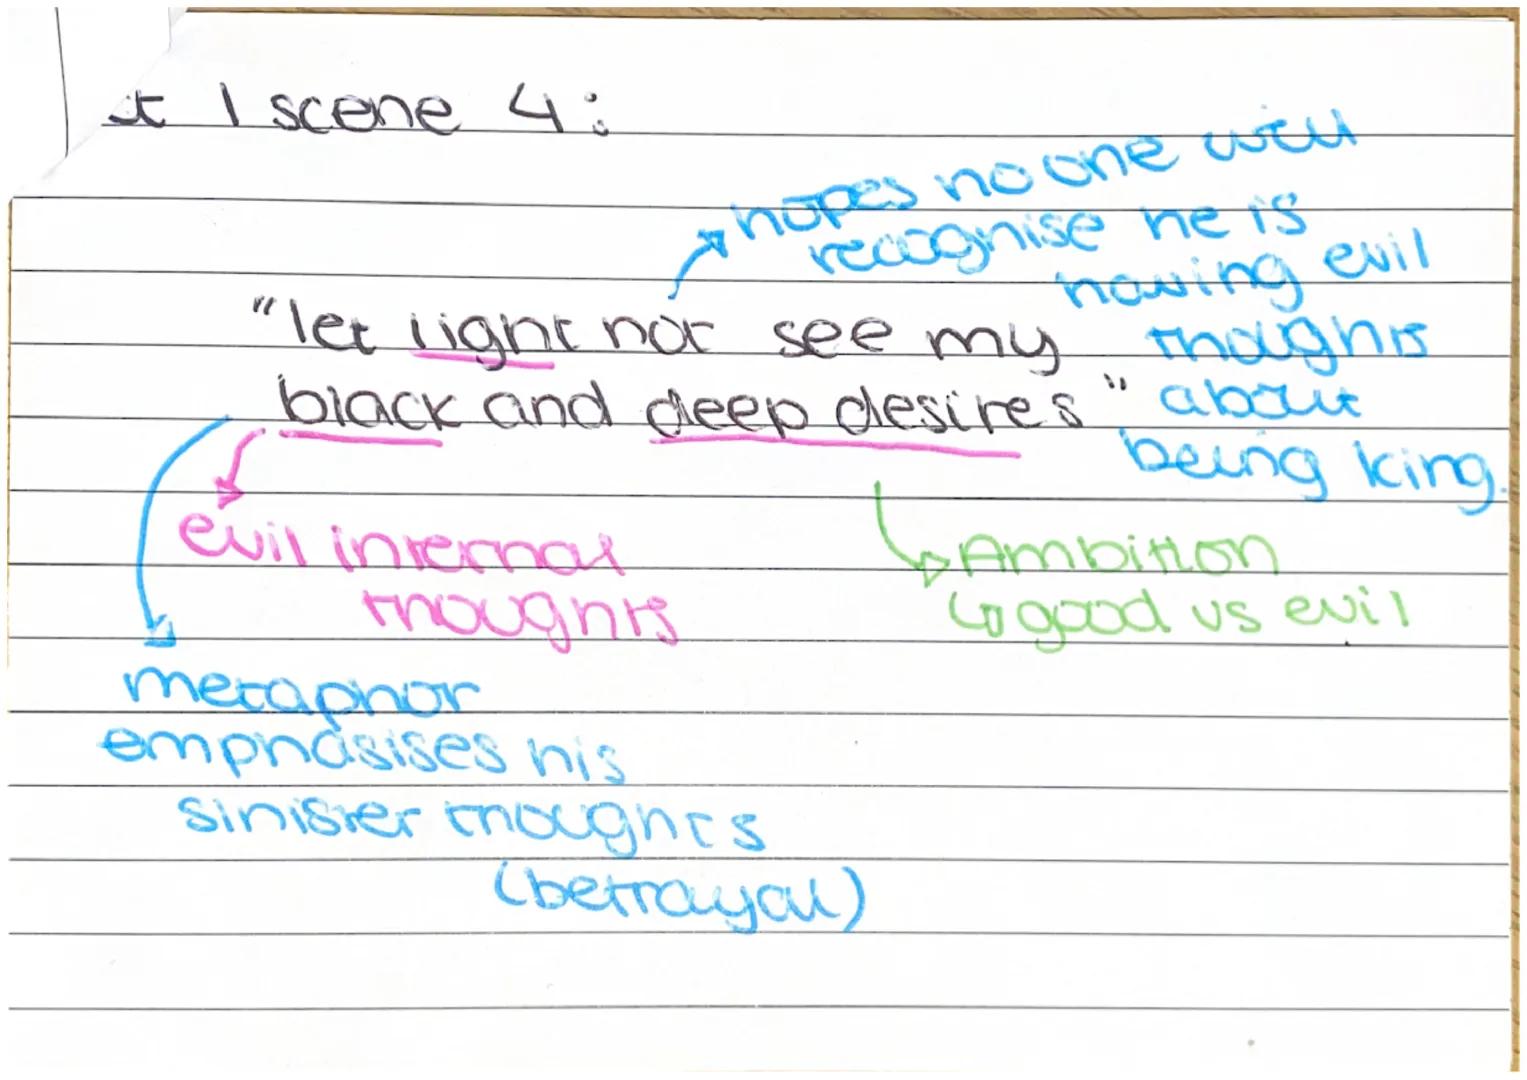 t 1 scene 4:
hopes no one will
recognise he is
having evil
thoughts
about
being king.
"let light not see my
black and deep desires"
evil internal
thoughts
Ambition
↳ good vs evil
metaphor
emphasises his
sinister thoughts
(betrayal)